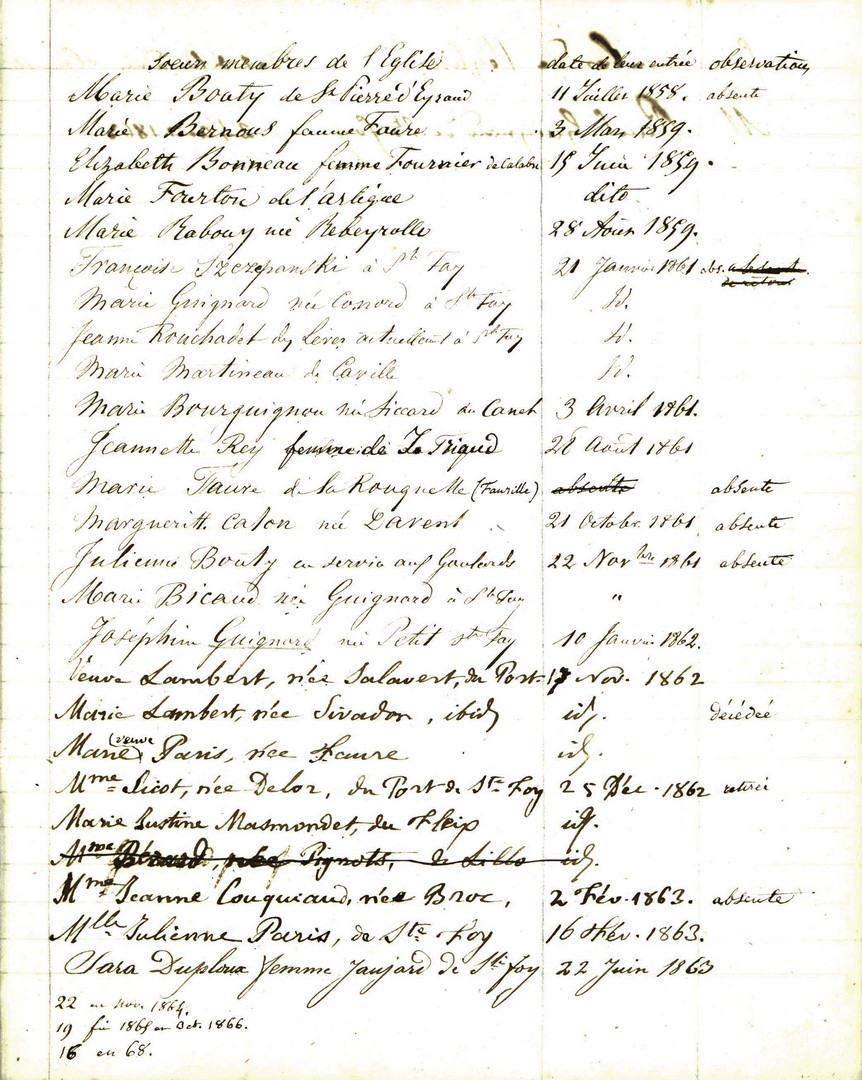 Soeurs membres de l'Eglise date de leur entrée observations
Marie Bouty de St Pierre d'Eyraud 11 Juillet 1858. absente
Marie Bernous femme Faure 3 Mars 1859.
Elizabeth Bonneau femme Fournier 15 Juin 1859.
Marie Fourton de l'artigue dito
Marie Rabouy née Rebeyrolle 28 Août 1859.
Françoise Szczepanski à Ste Foy 21 Janvier 1861 abs. absente
de retour
Marie Guignard née Conord à Ste Foy Id.
Jeanne Rouchadet des Lèves actuellement à Ste Foy Id.
Marie Martineau de Caville Id.
Marie Bourguignon née Siccard du Canet 3 Avril 1861.
Jeannette Rey femme de La Trigaud 28 Août 1861
Marie Faure de la Rouquette (Faurille) absente absente
Margueritte Calon née Davent 21 Octobr. 1861 absente
Julienne Bouty en service aux Goulards 22 Novbre 1861 absente
Marie Bicaud née Guignard à Ste Foy "
Joséphine Guignard née Petit Ste Foy 10 Janvier 1862.
Veuve Lambert, née Salavert, du Port 17 Nov. 1862
Marie Lambert, née Sivadon, ibid. id. décédée
Marie (veuve) Paris, née Faure id.
Mme Sicot, née Delor, du Port de Ste Foy 25 Déc. 1862 retirée
Marie Justine Masmondet, du Fleix id.
Mme Pignots, de Lille id.
Mme Jeanne Couquiaud, née Broc, 2 Fév. 1863. absente
Mlle Julienne Paris, de Ste Foy 16 Fév. 1863.
Sara Duploux femme Jaujard de Ste foy 22 Juin 1863
22 en nov. 1864.
19 fin 1865 en Oct. 1866.
16 en 68.